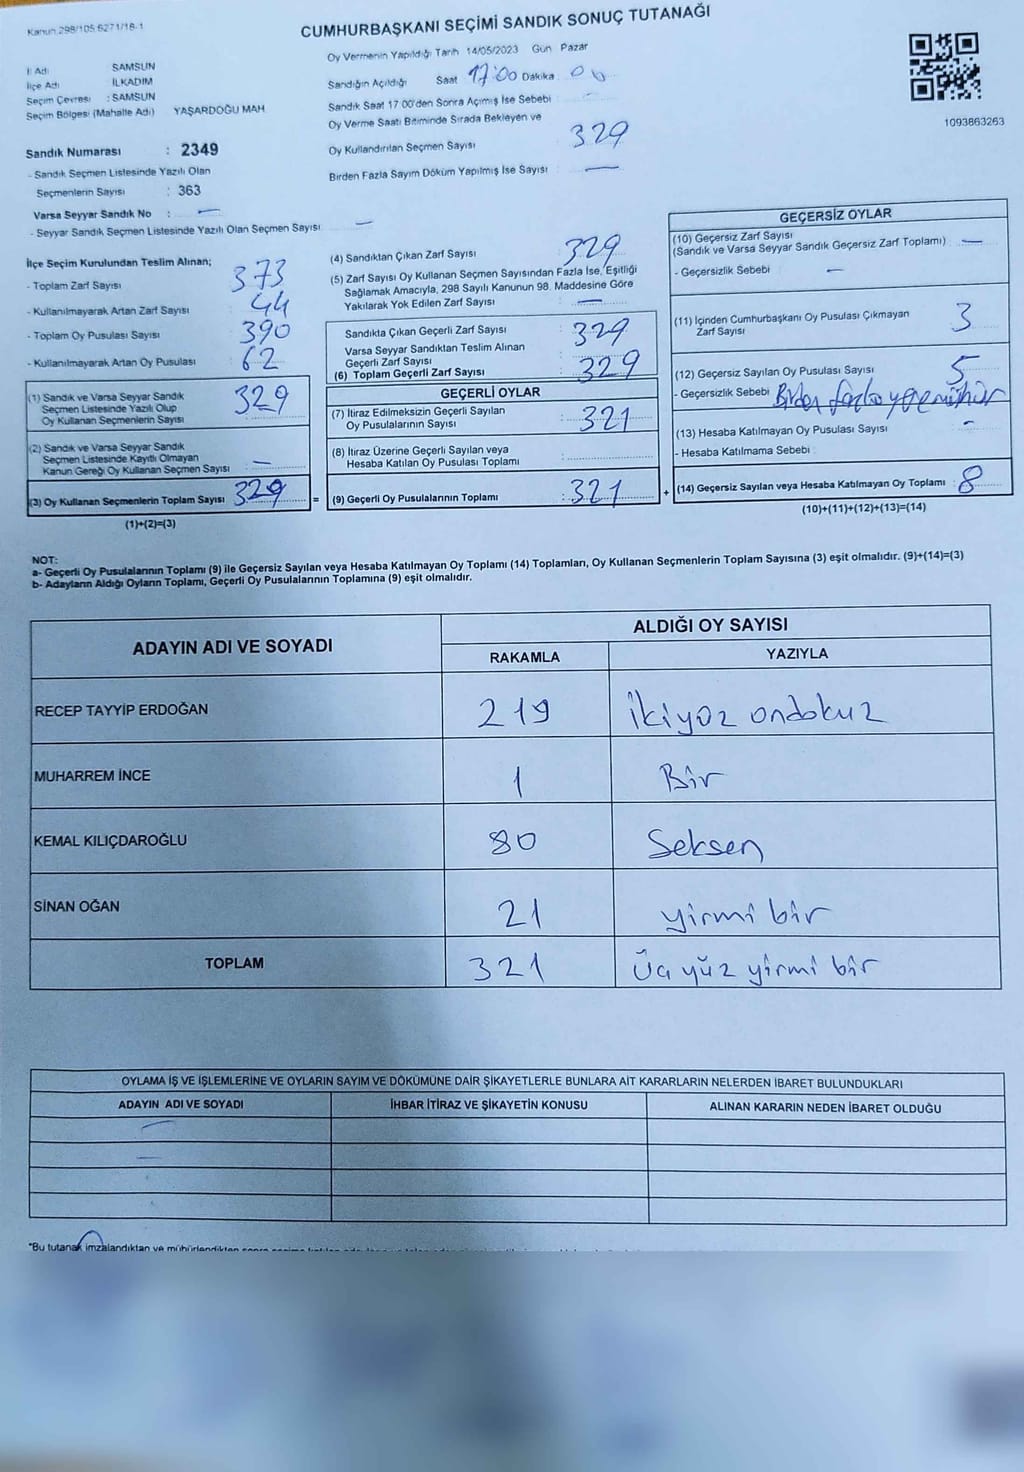 Kanun 298/105 6271/18-1
CUMHURBAŞKANI SEÇİMİ SANDIK SONUÇ TUTANAĞI
İl Adı SAMSUN
İlçe Adı İLKADIM
Seçim Çevresi : SAMSUN
Seçim Bölgesi (Mahalle Adı) YAŞARDOĞU MAH.
Sandık Numarası : 2349
- Sandık Seçmen Listesinde Yazılı Olan
Seçmenlerin Sayısı : 363
Varsa Seyyar Sandık No : —
- Seyyar Sandık Seçmen Listesinde Yazılı Olan Seçmen Sayısı —
Oy Vermenin Yapıldığı Tarih 14/05/2023 Gün Pazar
Sandığın Açıldığı Saat 17:00 Dakika 00
Sandık Saat 17 00'den Sonra Açımış İse Sebebi —
Oy Verme Saati Bitiminde Sırada Bekleyen ve
Oy Kullandırılan Seçmen Sayısı 329
Birden Fazla Sayım Döküm Yapılmış İse Sayısı —
1093863263
İlçe Seçim Kurulundan Teslim Alınan;
- Toplam Zarf Sayısı 373
- Kullanılmayarak Artan Zarf Sayısı 44
- Toplam Oy Pusulası Sayısı 390
- Kullanılmayarak Artan Oy Pusulası 62
(1) Sandık ve Varsa Seyyar Sandık
Seçmen Listesinde Yazılı Olup
Oy Kullanan Seçmenlerin Sayısı 329
(2) Sandık ve Varsa Seyyar Sandık
Seçmen Listesinde Kayıtlı Olmayan
Kanun Gereği Oy Kullanan Seçmen Sayısı —
(3) Oy Kullanan Seçmenlerin Toplam Sayısı 329
(1)+(2)=(3)
(4) Sandıktan Çıkan Zarf Sayısı 329
(5) Zarf Sayısı Oy Kullanan Seçmen Sayısından Fazla İse, Eşitliği
Sağlamak Amacıyla, 298 Sayılı Kanunun 98. Maddesine Göre
Yakılarak Yok Edilen Zarf Sayısı —
Sandıkta Çıkan Geçerli Zarf Sayısı : 329
Varsa Seyyar Sandıktan Teslim Alınan
Geçerli Zarf Sayısı :
(6) Toplam Geçerli Zarf Sayısı : 329
GEÇERLİ OYLAR
(7) İtiraz Edilmeksizin Geçerli Sayılan
Oy Pusulalarının Sayısı : 321
(8) İtiraz Üzerine Geçerli Sayılan veya
Hesaba Katılan Oy Pusulası Toplamı :
= (9) Geçerli Oy Pusulalarının Toplamı : 321
GEÇERSİZ OYLAR
(10) Geçersiz Zarf Sayısı
(Sandık ve Varsa Seyyar Sandık Geçersiz Zarf Toplamı) —
- Geçersizlik Sebebi —
(11) İçinden Cumhurbaşkanı Oy Pusulası Çıkmayan
Zarf Sayısı 3
(12) Geçersiz Sayılan Oy Pusulası Sayısı 5
- Geçersizlik Sebebi Birden fazla yere mühür
(13) Hesaba Katılmayan Oy Pusulası Sayısı -
- Hesaba Katılmama Sebebi :
+ (14) Geçersiz Sayılan veya Hesaba Katılmayan Oy Toplamı : 8
(10)+(11)+(12)+(13)=(14)
NOT:
a- Geçerli Oy Pusulalarının Toplamı (9) ile Geçersiz Sayılan veya Hesaba Katılmayan Oy Toplamı (14) Toplamları, Oy Kullanan Seçmenlerin Toplam Sayısına (3) eşit olmalıdır. (9)+(14)=(3)
b- Adayların Aldığı Oyların Toplamı, Geçerli Oy Pusulalarının Toplamına (9) eşit olmalıdır.
ADAYIN ADI VE SOYADI
ALDIĞI OY SAYISI
RAKAMLA YAZIYLA
RECEP TAYYİP ERDOĞAN 219 İkiyüz ondokuz
MUHARREM İNCE 1 Bir
KEMAL KILIÇDAROĞLU 80 Seksen
SİNAN OĞAN 21 yirmi bir
TOPLAM 321 Üç yüz yirmi bir
OYLAMA İŞ VE İŞLEMLERİNE VE OYLARIN SAYIM VE DÖKÜMÜNE DAİR ŞİKAYETLERLE BUNLARA AİT KARARLARIN NELERDEN İBARET BULUNDUKLARI
ADAYIN ADI VE SOYADI İHBAR İTİRAZ VE ŞİKAYETİN KONUSU ALINAN KARARIN NEDEN İBARET OLDUĞU
"Bu tutanak imzalandıktan ve mühürlendikten sonra